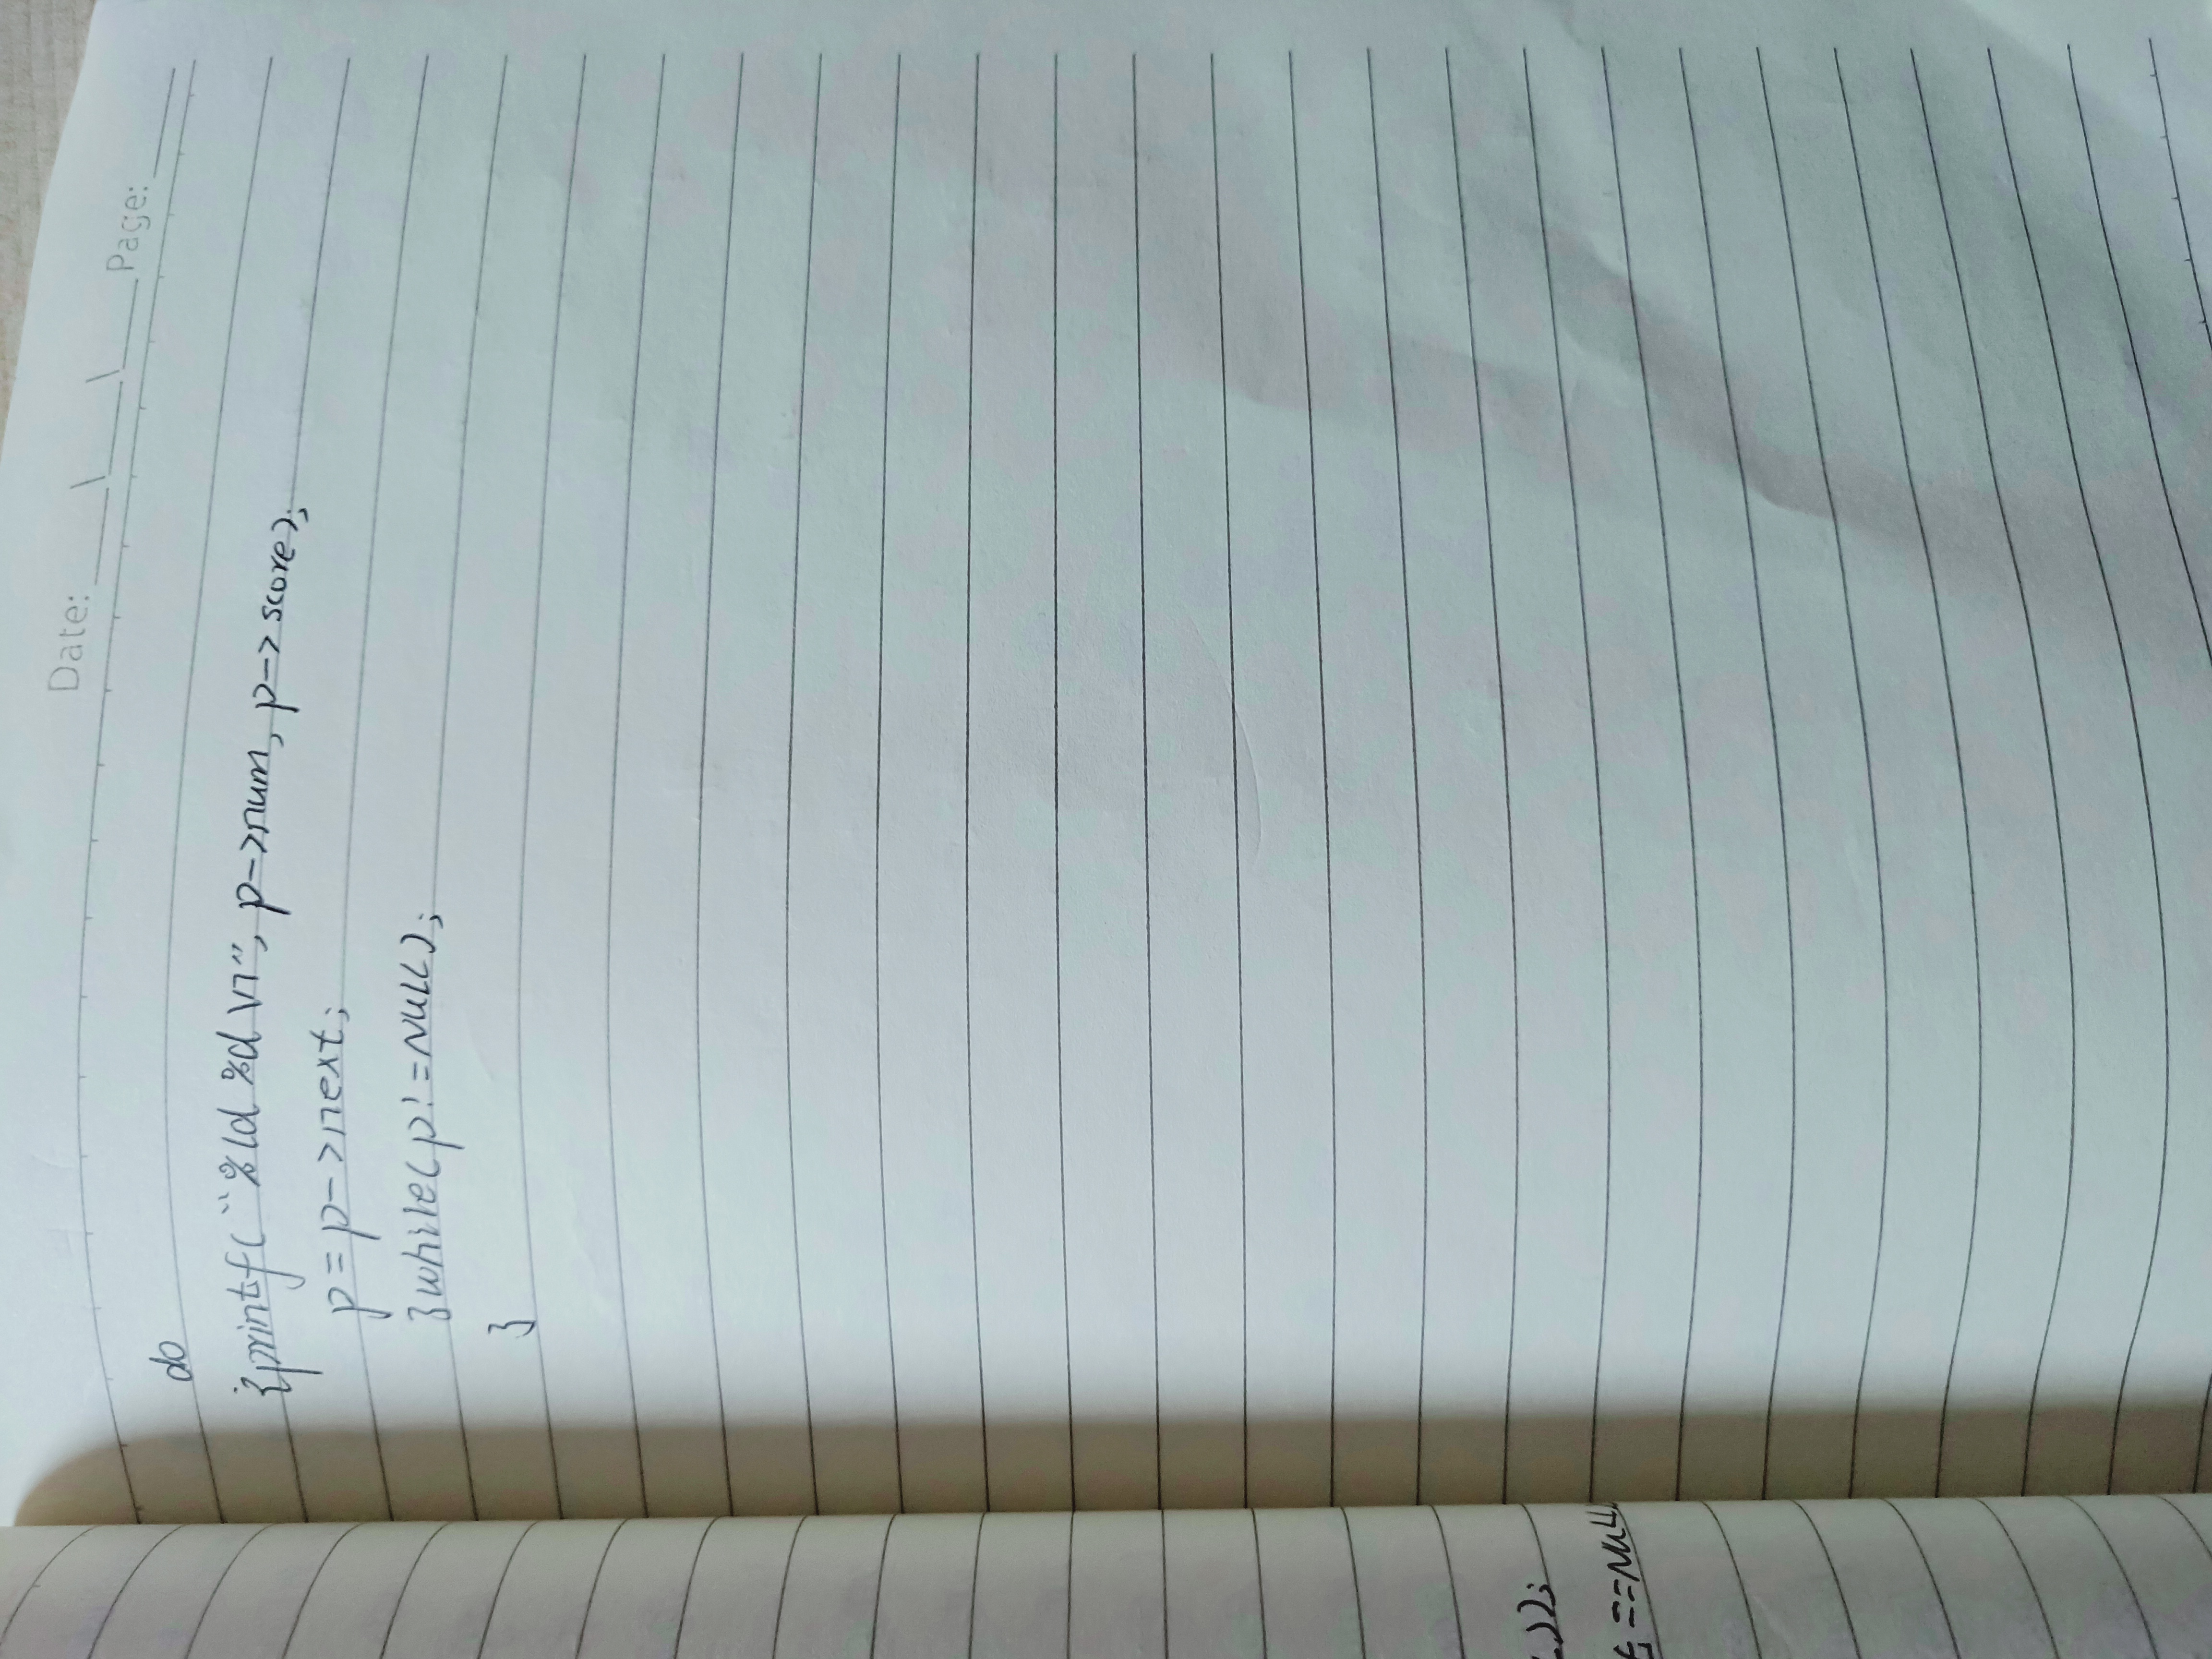 Date: / / Page:
do
{printf("%ld %d\n", p->num, p->score);
p=p->next;
}while(p!=NULL);
}
));
==NULL